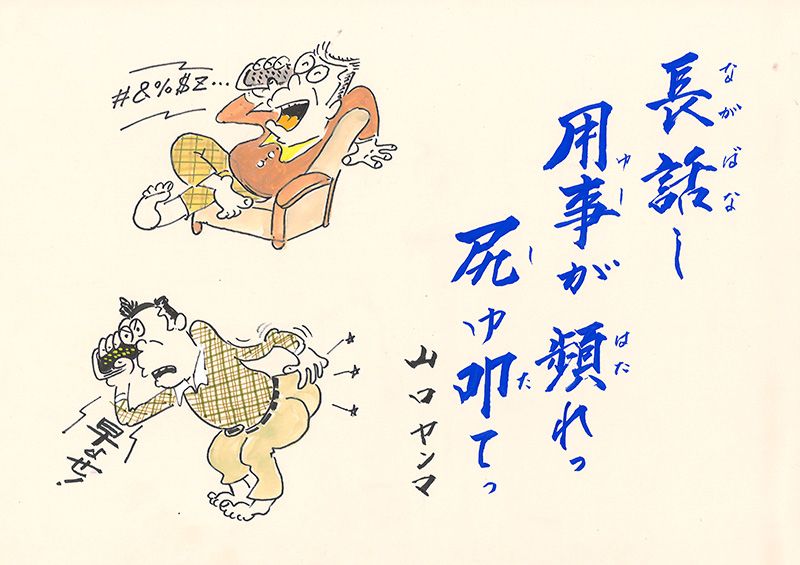 長話し
ながばな
用事が頻れっ
ゆし はた
尻ゆ叩てっ
し た
山口ヤンマ
#&%$Z...
早よせ!